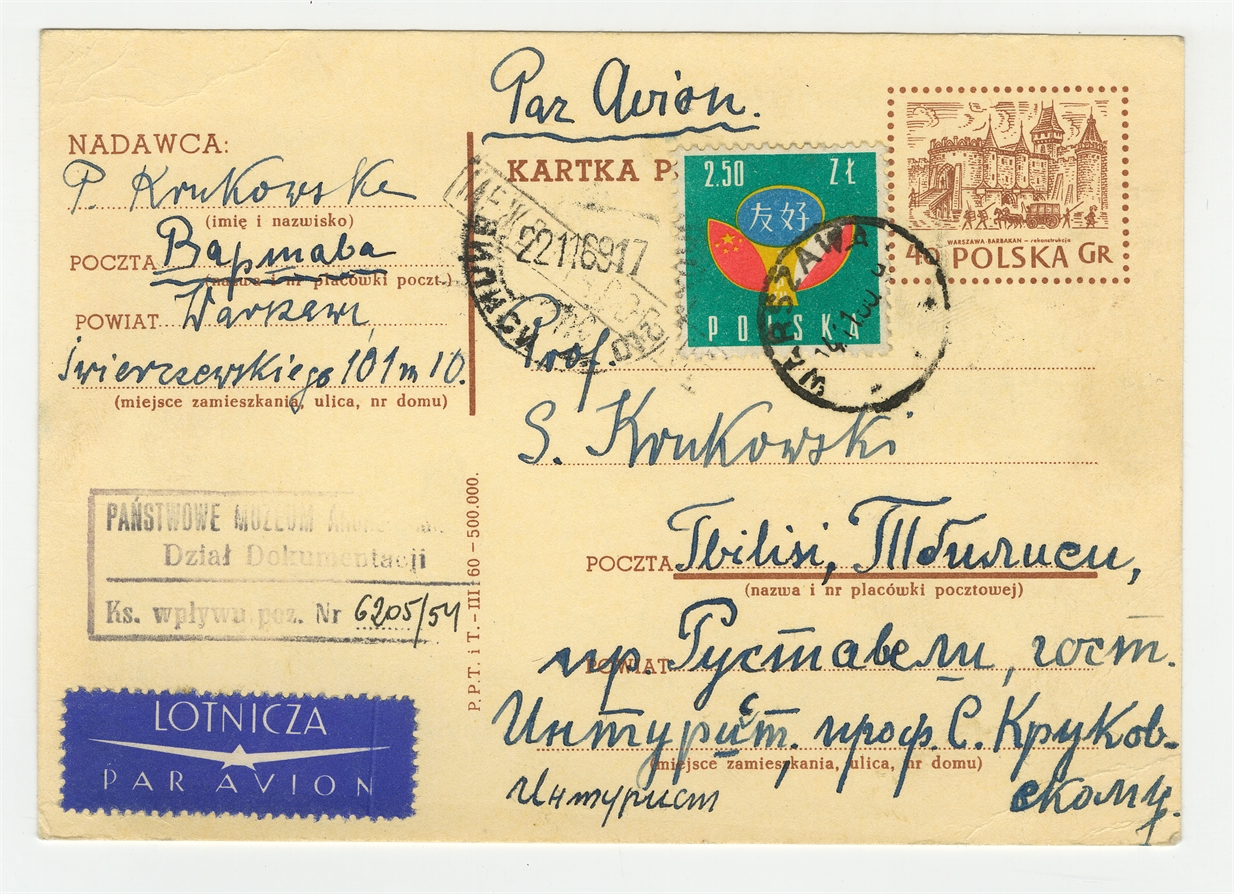 Par Avion.
NADAWCA:
P. Krukowska
(imię i nazwisko)
POCZTA Варшава
(nazwa i nr placówki poczt.)
POWIAT Warszawa,
Świerczewskiego 101 m 10.
(miejsce zamieszkania, ulica, nr domu)
KARTKA P
2.50 ZŁ
友好
POLSKA
WARSZAWA
WARSZAWA BARBAKAN – rekonstrukcja
40 POLSKA GR
Prof.
S. Krukowski
POCZTA Tbilisi, Тбилиси,
(nazwa i nr placówki pocztowej)
POWIAT пр. Руставели, гост.
Интурист. проф. С. Круков-
(miejsce zamieszkania, ulica, nr domu)
Интурист скому.
P.P.T. i T. – III 60 – 500.000.
PAŃSTWOWE MUZEUM
Dział Dokumentacji
Ks. wpływu poz. Nr 6205/54
LOTNICZA
PAR AVION